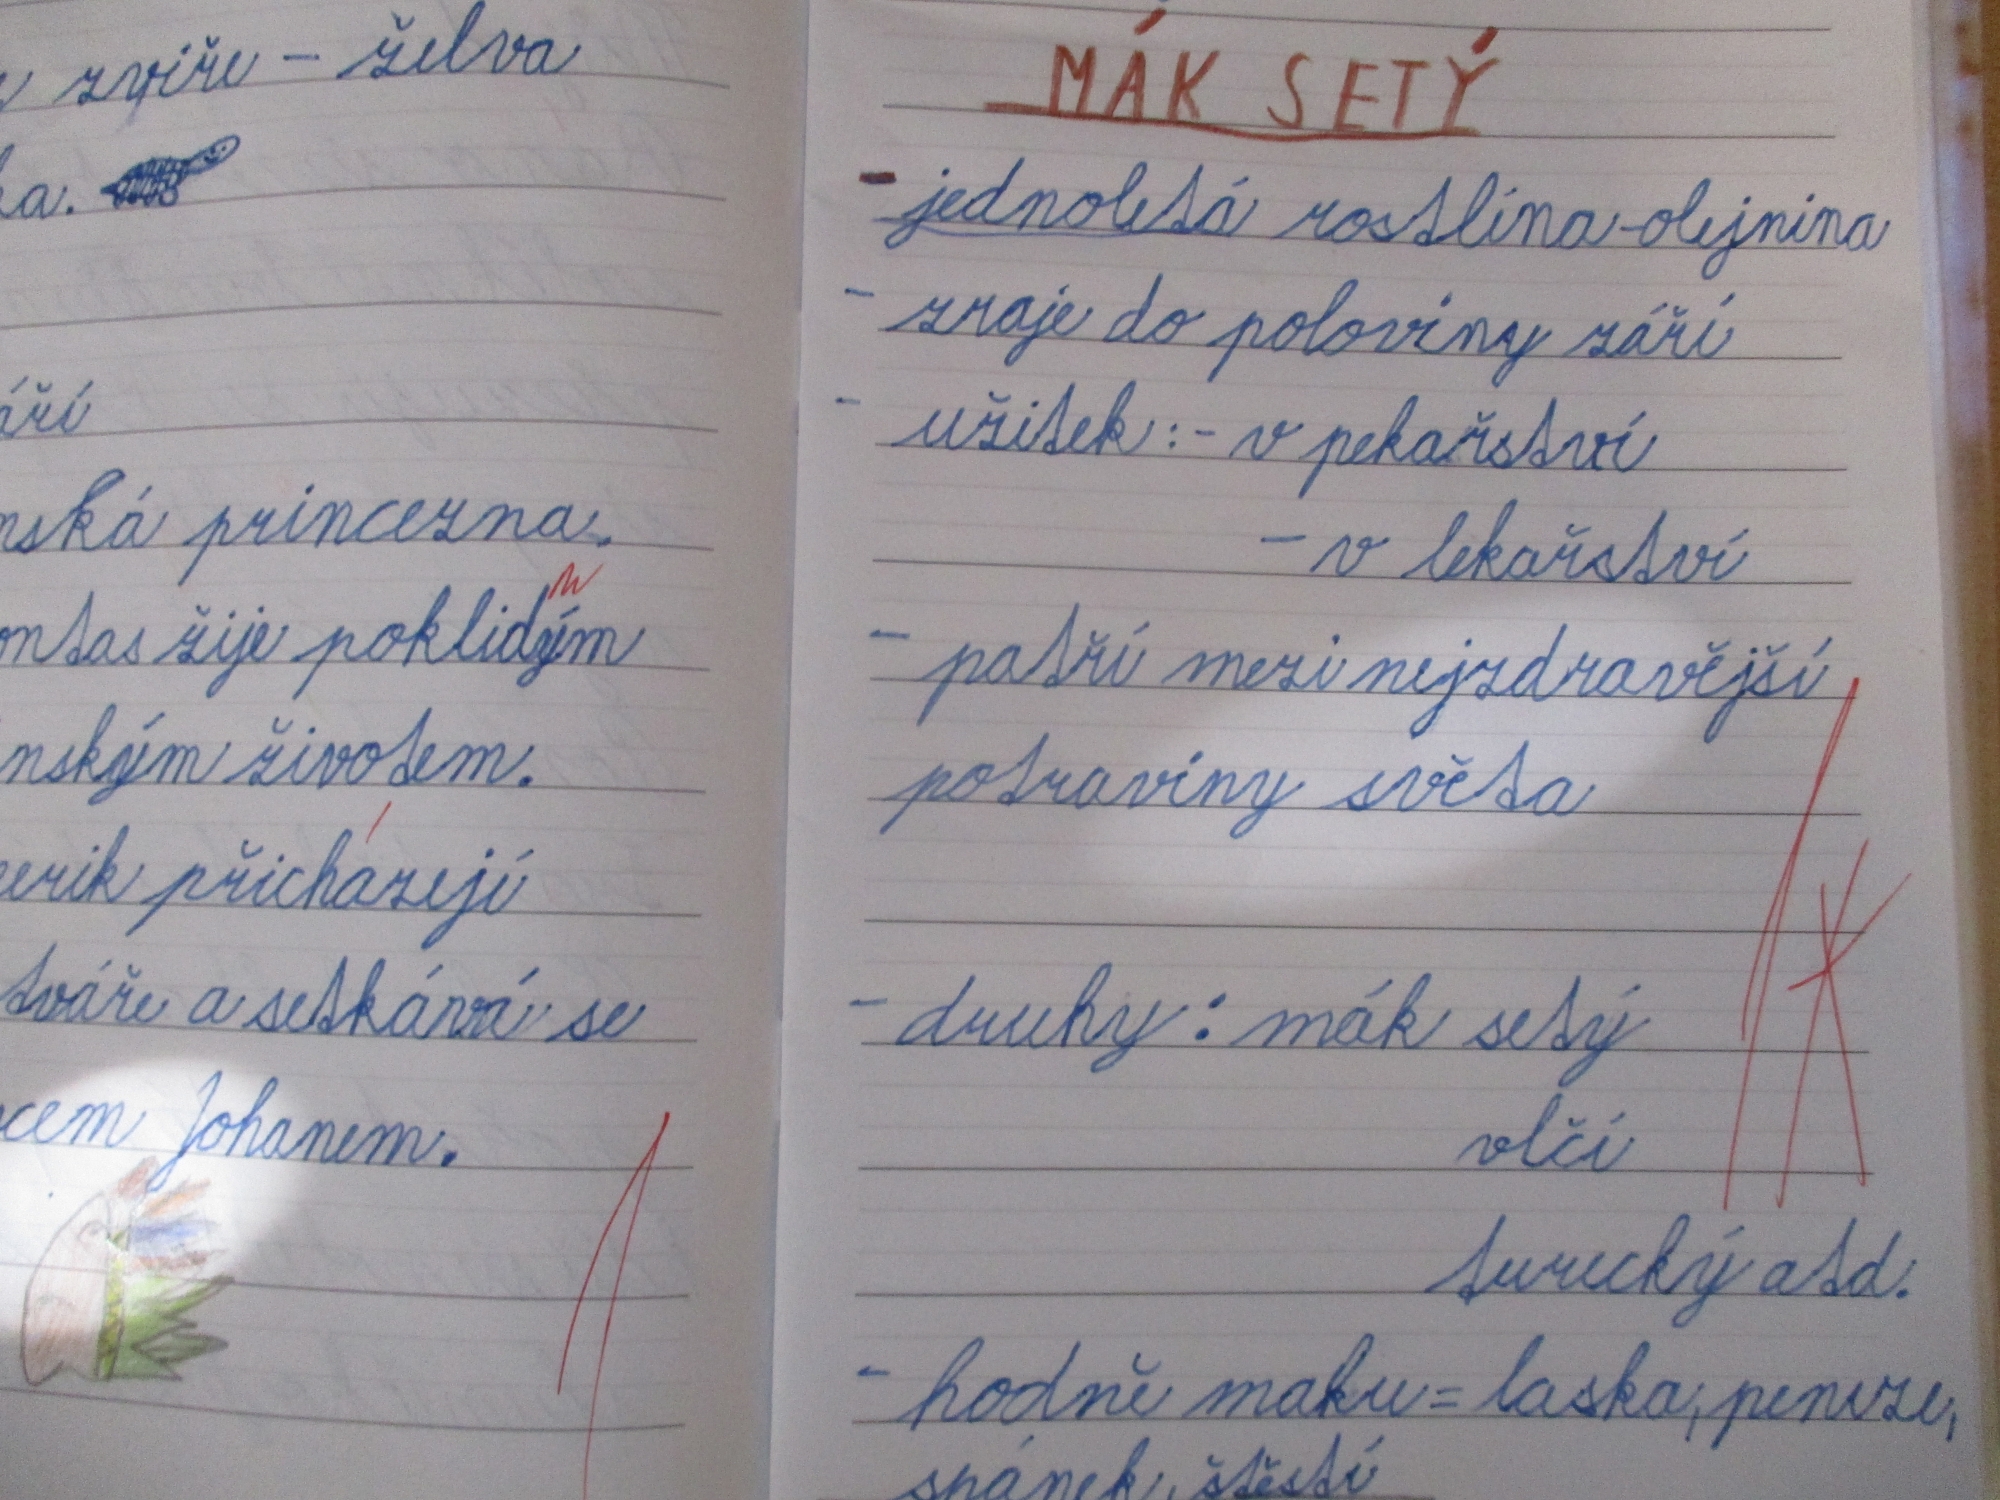 zvíře – želva
ka.
áří
nská princezna.
ontas žije poklidým
n
nským životem.
eerik přicházejí
tváře a setkává se
cem Johanem.
MÁK SETÝ
- jednoletá rostlina-olejnina
- zraje do poloviny září
- užitek:- v pekařství
- v lékařství
- patří mezi nejzdravější
potraviny světa
- druhy: mák setý
vlčí
turecký atd.
- hodně maku = laska, peníze,
spánek, štěstí